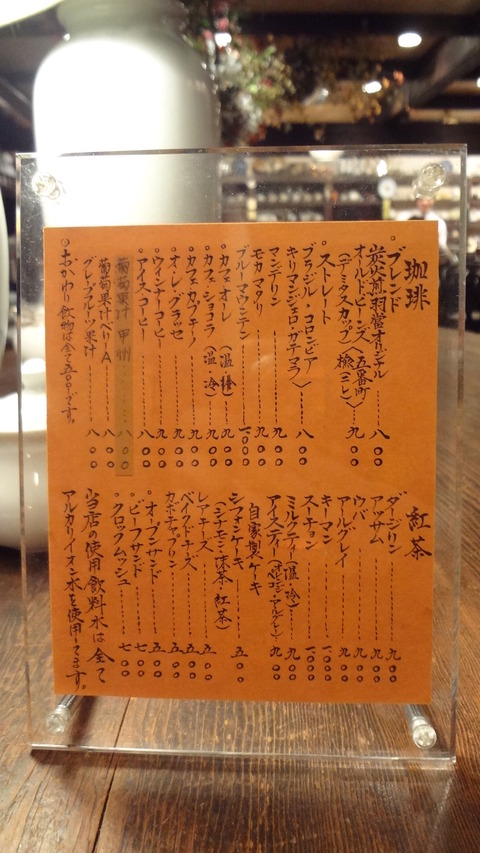 珈琲
○ブレンド
炭火煎羽當オリジナル………八〇〇
オールドビーンズ〈五番町
(デミタスカップ) 檜(ミレ)〉………九〇〇
○ストレート
ブラジル・コロンビア
キリマンジェロ・ガテマラ〉………八〇〇
マンデリン………九〇〇
モカマタリ………九〇〇
ブルーマウンテン………一〇〇〇
○カフェオーレ(温・冷)………九〇〇
○カフェ・ショコラ(温・冷)………九〇〇
○カフェカプチーノ………九〇〇
○オ・レ・グラッセ………九〇〇
○ウィンナーコーヒー………九〇〇
○アイスコーヒー………八〇〇
葡萄果汁 甲州………八〇〇
葡萄果汁ベリーA………八〇〇
グレープフルーツ果汁………八〇〇
○おかわり飲物は全て五〇〇です。
紅茶
ダージリン………九〇〇
アッサム………九〇〇
ウバ………九〇〇
アールグレイ………九〇〇
キーマン………一〇〇〇
スーチョン………一〇〇〇
ミルクティー(温・冷)………九〇〇
アイスティー(セイロン・アールグレイ)………九〇〇
自家製ケーキ
シフォンケーキ………五〇〇
(シナモン・抹茶・紅茶)
レアチーズ………五〇〇
ベイクドチーズ………五〇〇
カボチャプリン………五〇〇
○オープンサンド………五〇〇
○ビーフサンド………七〇〇
○クロックムッシュ………七〇〇
当店の使用飲料水は全て
アルカリイオン水を使用してます。